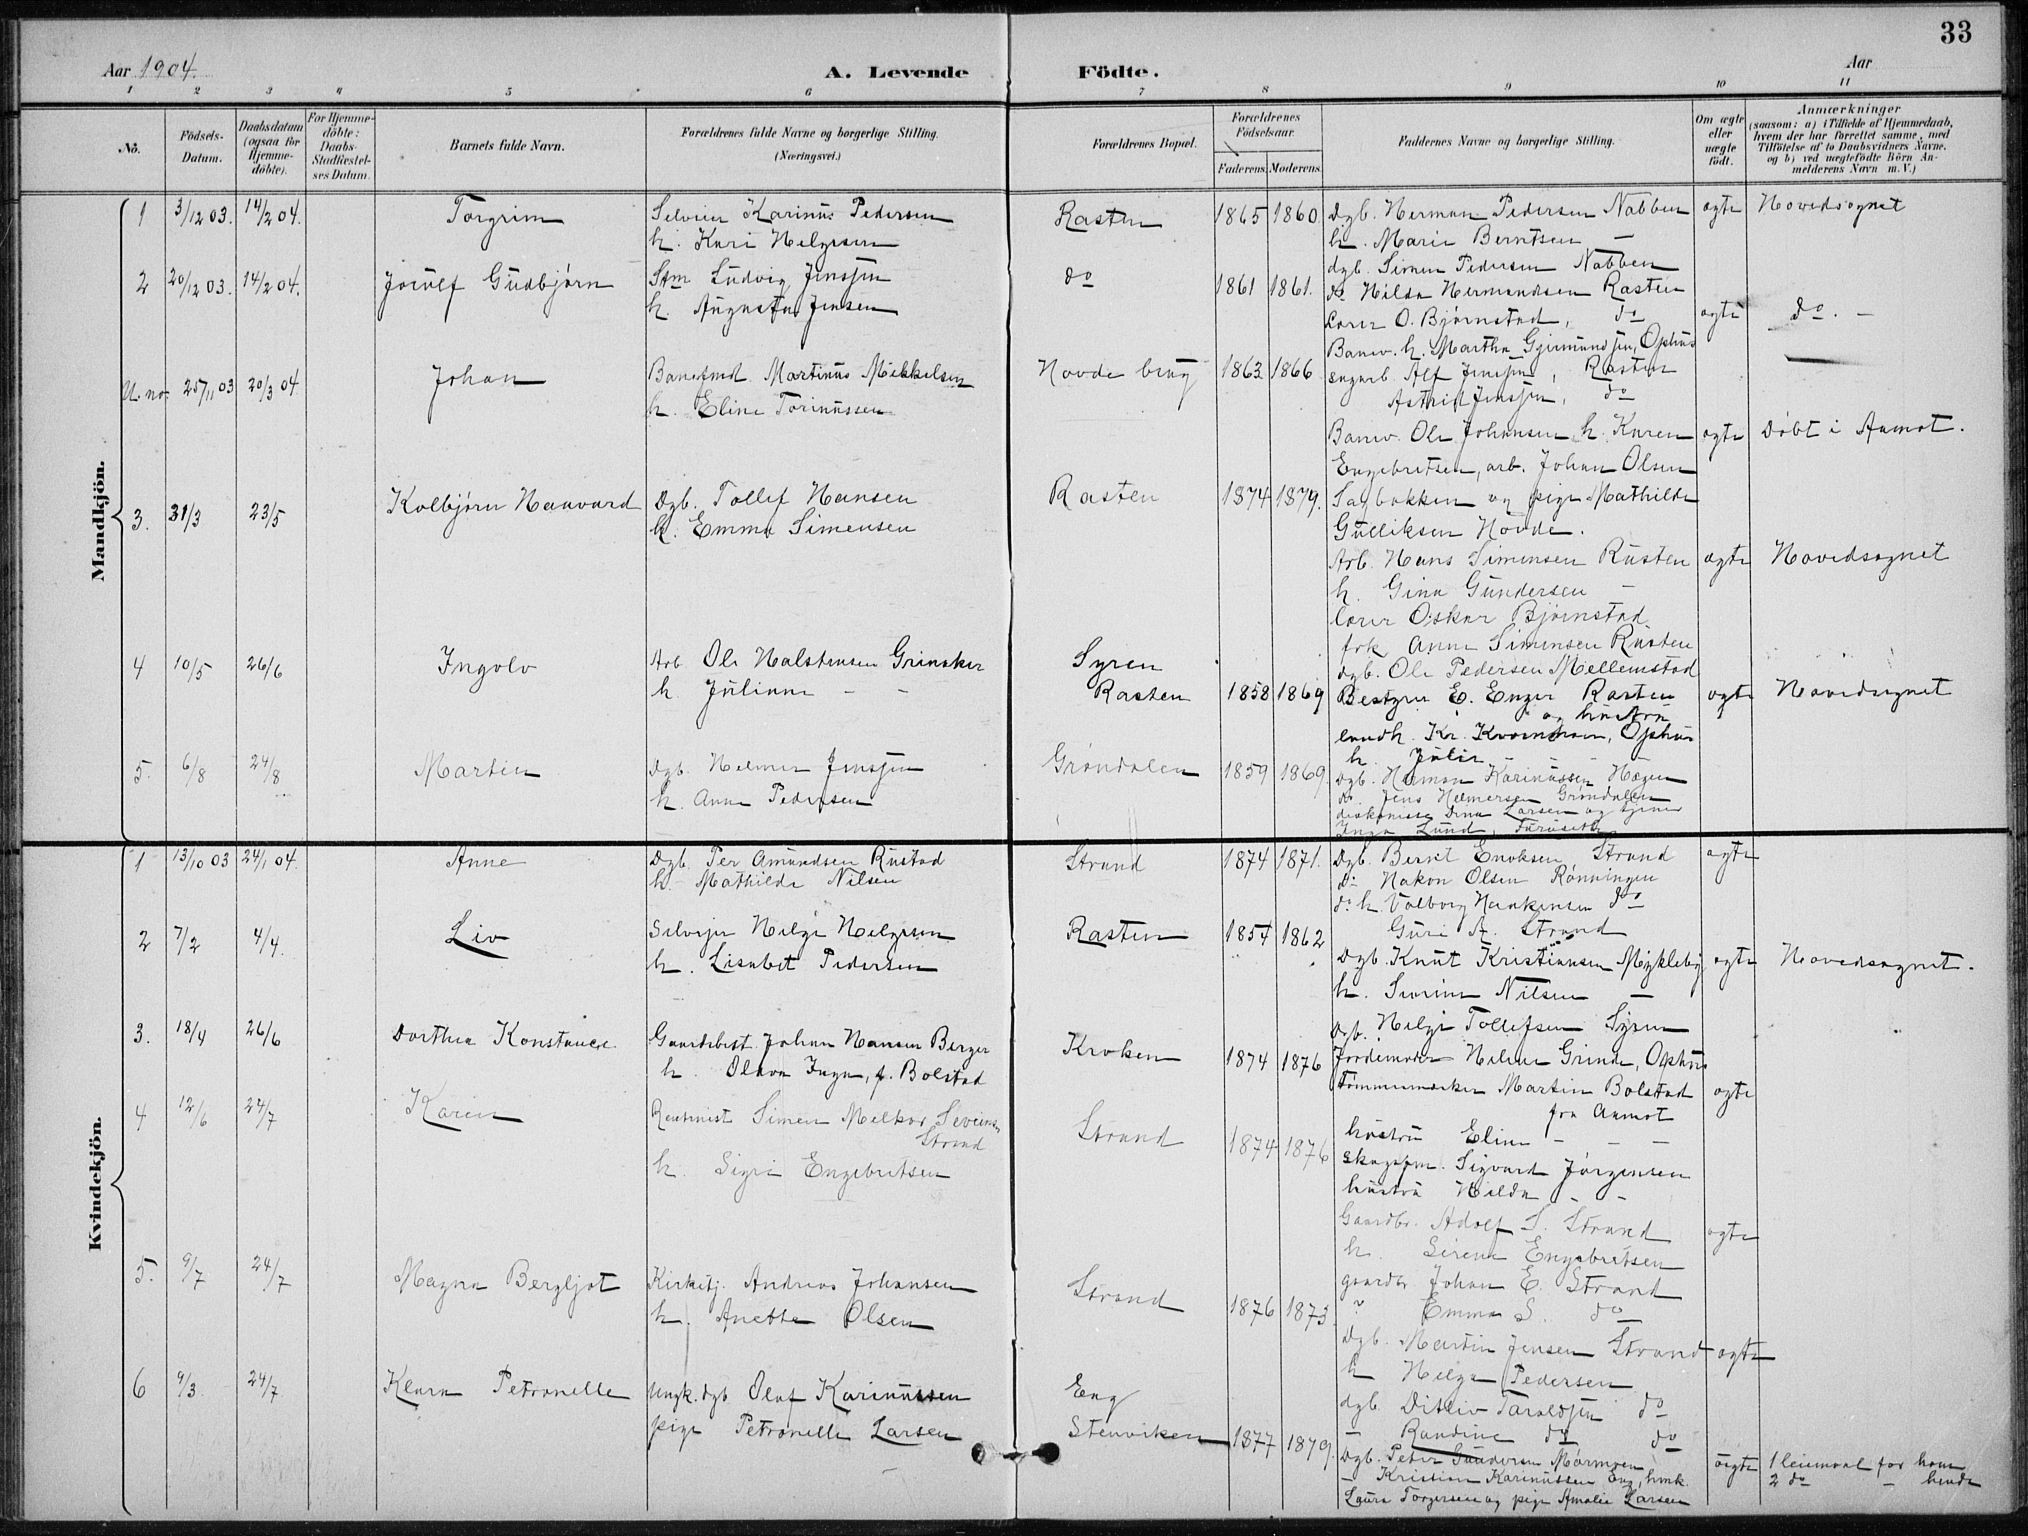 33
Aar 1904.
A. Levende Födte.
Aar
1 2 3 4 5 6 7 8 9 10 11
No.
Födsels-Datum.
Daabsdatum (ogsaa for Hjemmedöbte).
For Hjemmedöbte: Daabs-Stadfæstelses Datum.
Barnets fulde Navn.
Forældrenes fulde Navne og borgerlige Stilling. (Næringsvei.)
Forældrenes Bopæl.
Forældrenes Födselsaar.
Faderens. Moderens.
Faddernes Navne og borgerlige Stilling.
Om ægte eller uægte födt.
Anmærkninger
(saasom: a) i Tilfælde af Hjemmedaab, hvem der har forrettet samme, med Tilföielse af to Daabsvidners Navne, og b) ved uægtefödte Börn Anmelderens Navn m. V.)
Mandkjön.
1 3/12 03. 14/2 04. Torgrim Selveier Karinus Pedersen Rasten 1865 1860. Dgb. Herman Pedersen Nabben ægte Hovedsognet
h. Kari Helgesen h. Marie Berntsen —
dgb. Simen Pedersen Nabben
2 20/12 03. 14/2 04. Joculf Gudbjörn Stm Ludvig Jenssen do 1861 1861. do Hilda Hermandsen Rasten
h. Augusta Jensen Lærer O. Bjørnstad, do ægte do. —
Banev. h. Martha Gjermundsen, Ophus
U. no. 25/11 03 20/3 04 Johan Banefmd Martinus Mikkelsen Hovde brug 1863 1866 ungarb. Alf Jensen, Rasten
h. Eline Torinussen Astrid Jensen, do
Banev. Ole Johansen, h. Karen ægte Döbt i Aamot.
Engebretsen, arb. Johan Olsen
3. 31/3 23/5 Kolbjørn Haavard Dgb. Tollef Hansen Rasten 1874 1879. Sagbakken og pige Mathilde
h. Emma Simensen Gulliksen Hovde.
Arb. Hans Simensen Rusten ægte Hovedsognet
h. Gina Gundersen —
lærer Oskar Bjørnstad
frk Anna Simensen Rusten
4 10/5 26/6 Ingolv Arb. Ole Halstensen Grinaker Syren dgb. Ole Pedersen Mellemstad
h. Juliane — — Rasten 1858 1869 Bestyrer E. Enger Rasten ægte Hovedsognet
og hustru
landh. Kr. Kvernhaven, Ophus
h. Julie — —
5. 6/8 24/8 Martin Dgb. Helmer Jenssen Grøndalen 1859 1869. Dgb. Herman Karinussen Hagen
h. Anne Pedersen do Jens Helmersen Grøndalen
diakonisse Dina Larsen og tjener
Inga Lund, Furuseth
Kvindekjön.
1 13/10 03 24/1 04. Anne Dgb. Per Amundsen Rustad Strand 1874 1871. Dgb. Bernt Enoksen, Strand ægte
h. Mathilde Nilsen do Hakon Olsen Rönningen
do h. Valborg Haakensen do
Guri A. Strand
2 7/2 4/4. Liv Selvejer Helge Helgesen Rasten 1854 1862 Dgb. Knut Kristiansen Mykleby ægte Hovedsognet.
h. Lisabet Pedersen h. Severine Nilsen —
Dgb. Helge Tollefsen Syren
3. 18/4 26/6 Dorthea Konstance Gaardbest. Johan Hansen Berger Kroken 1874 1876 Jordemoder Helene Grinde, Ophus
h. Olava Inga, f. Bolstad Tömmermærker Martin Bolstad ægte
fra Aamot
4 12/6 24/7 Karen Rentenist Simen Melkor Severinsen Strand Strand 1874 1876 hustru Eline — — —
h. Sigri Engebretsen skogsfm. Sigvard Jørgensen
hustru Hilda — —
Gaardbr. Adolf S. Strand ægte
h. Sirena Engebretsen
5. 9/7 24/7 Magna Bergljot Kirketj. Andreas Johansen Strand 1876 1873. gaardbr Johan E. Strand
h. Anette Olsen Emma S. do
Dgb. Martin Jensen Strand ægte
h Helga Pedersen
6 9/3 24/7 Klara Petronelle Ungk. dgb Olaf Karinussen Eng dgb. Ditlev Taraldsen do
pige Petronelle Larsen Stenviken 1877 1879. — Randine do do
Dgb. Peter Gundersen Mörmoen, uægte 1 leiermaal for ham
— Kristian Karinussen Eng, hmk 2 do — hende
Laura Torgersen og pige Amalie Larsen